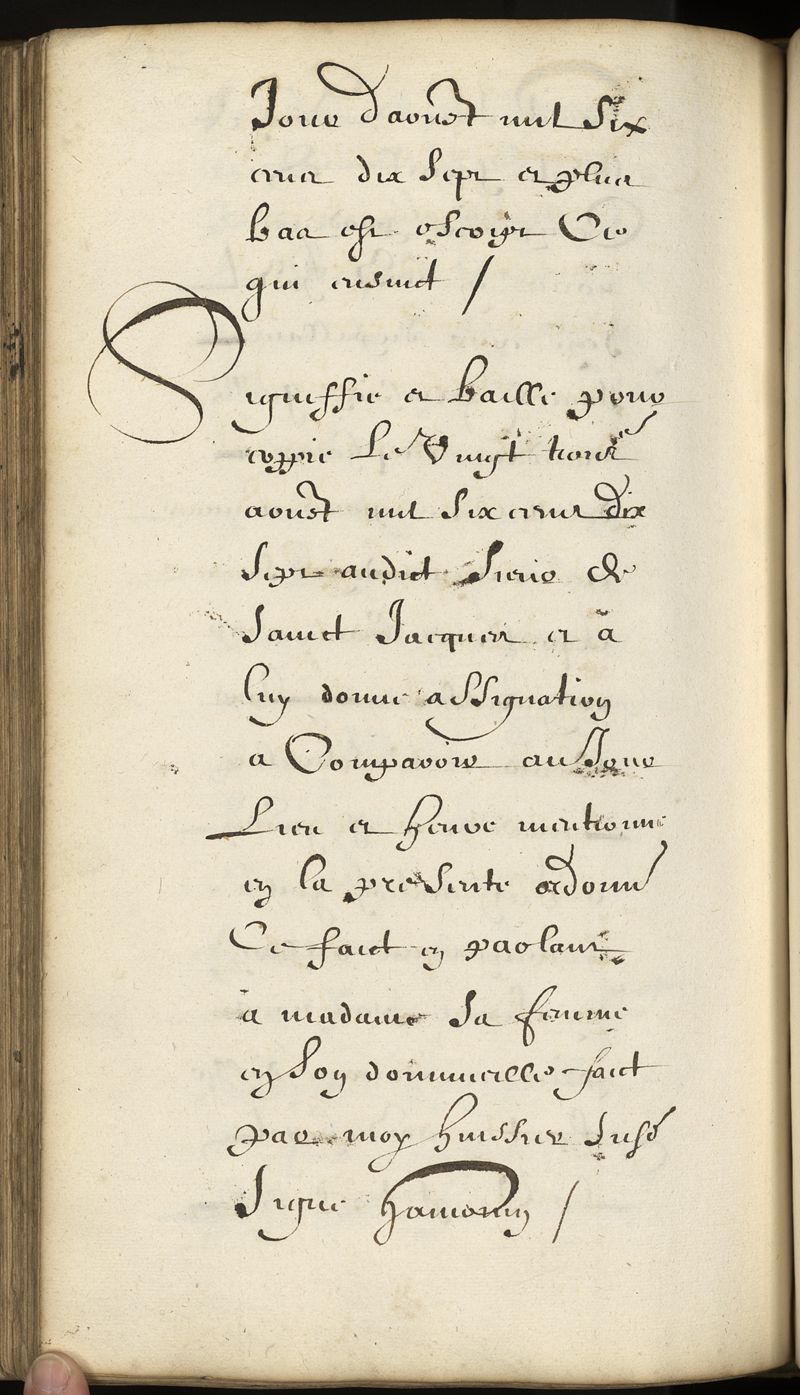 Jour daoust mil six
cens dix sept et plus
bas est escript Ce
qui ensuict /
Signiffie et baille pour
coppie Le Vingt trois.e
aoust mil six cens dix
sept audict sieur de
sainct Jacques et a
luy donne assignation
a Comparoir au Jour
Lieu et heure mentionne
en la presente ordonn.
Ce faict en parlant
a madame sa femme
en son dommicille faict
par moy huissier subs.
signe hamonin /